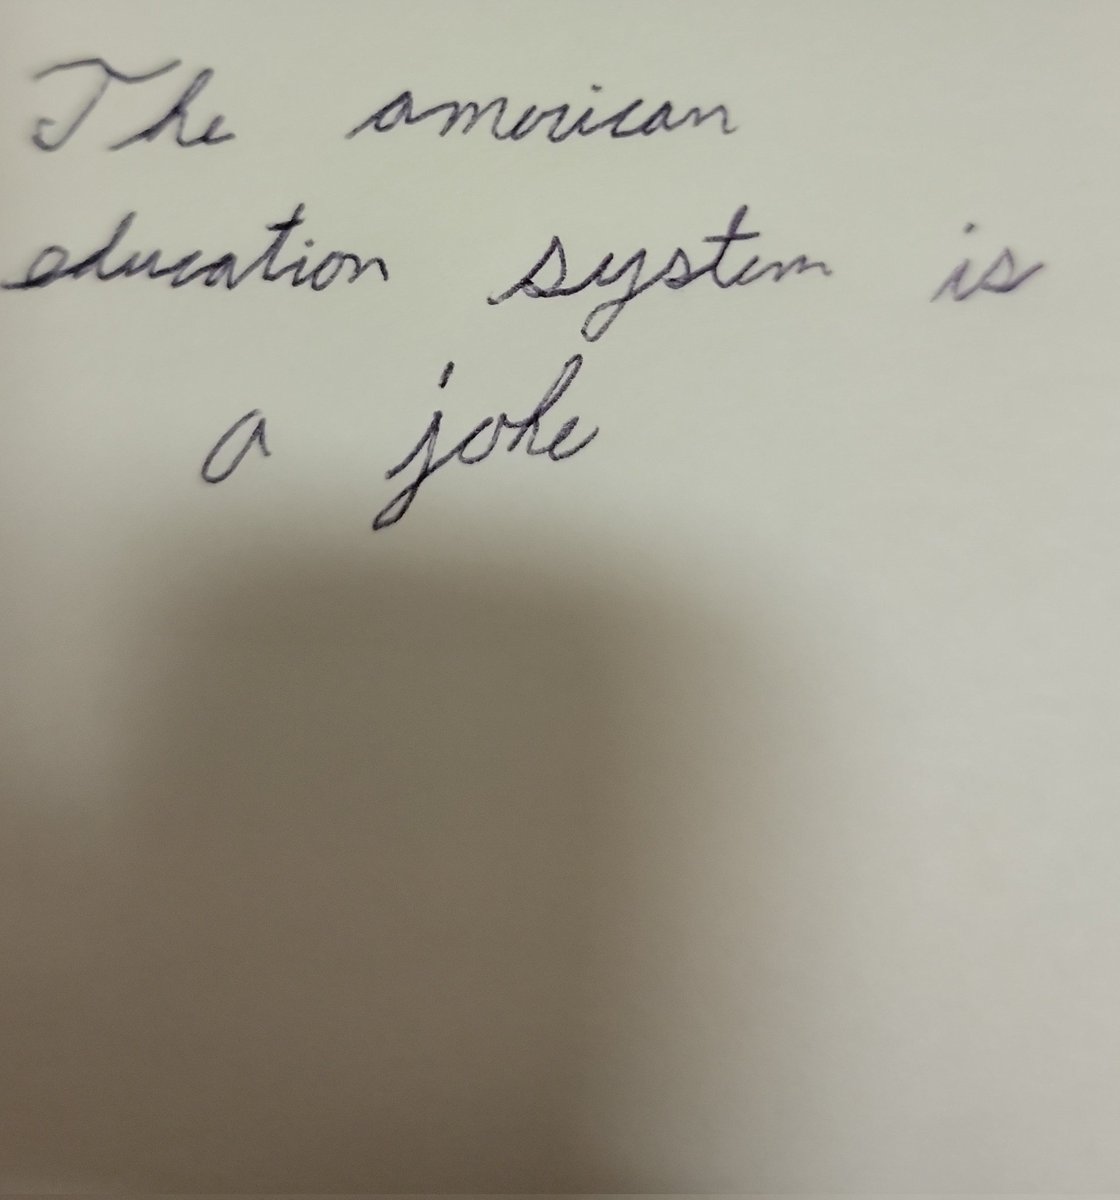 The american
education system is
a joke